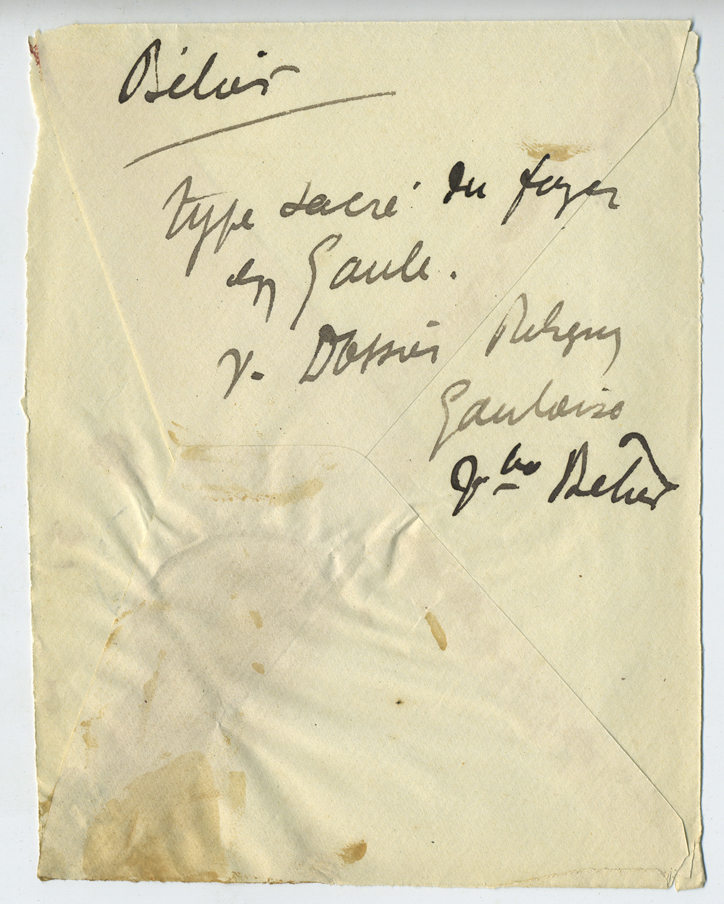 Bélier
type sacré du foyer
en Gaule.
V. Dossier Religion
Gauloise
Bélier